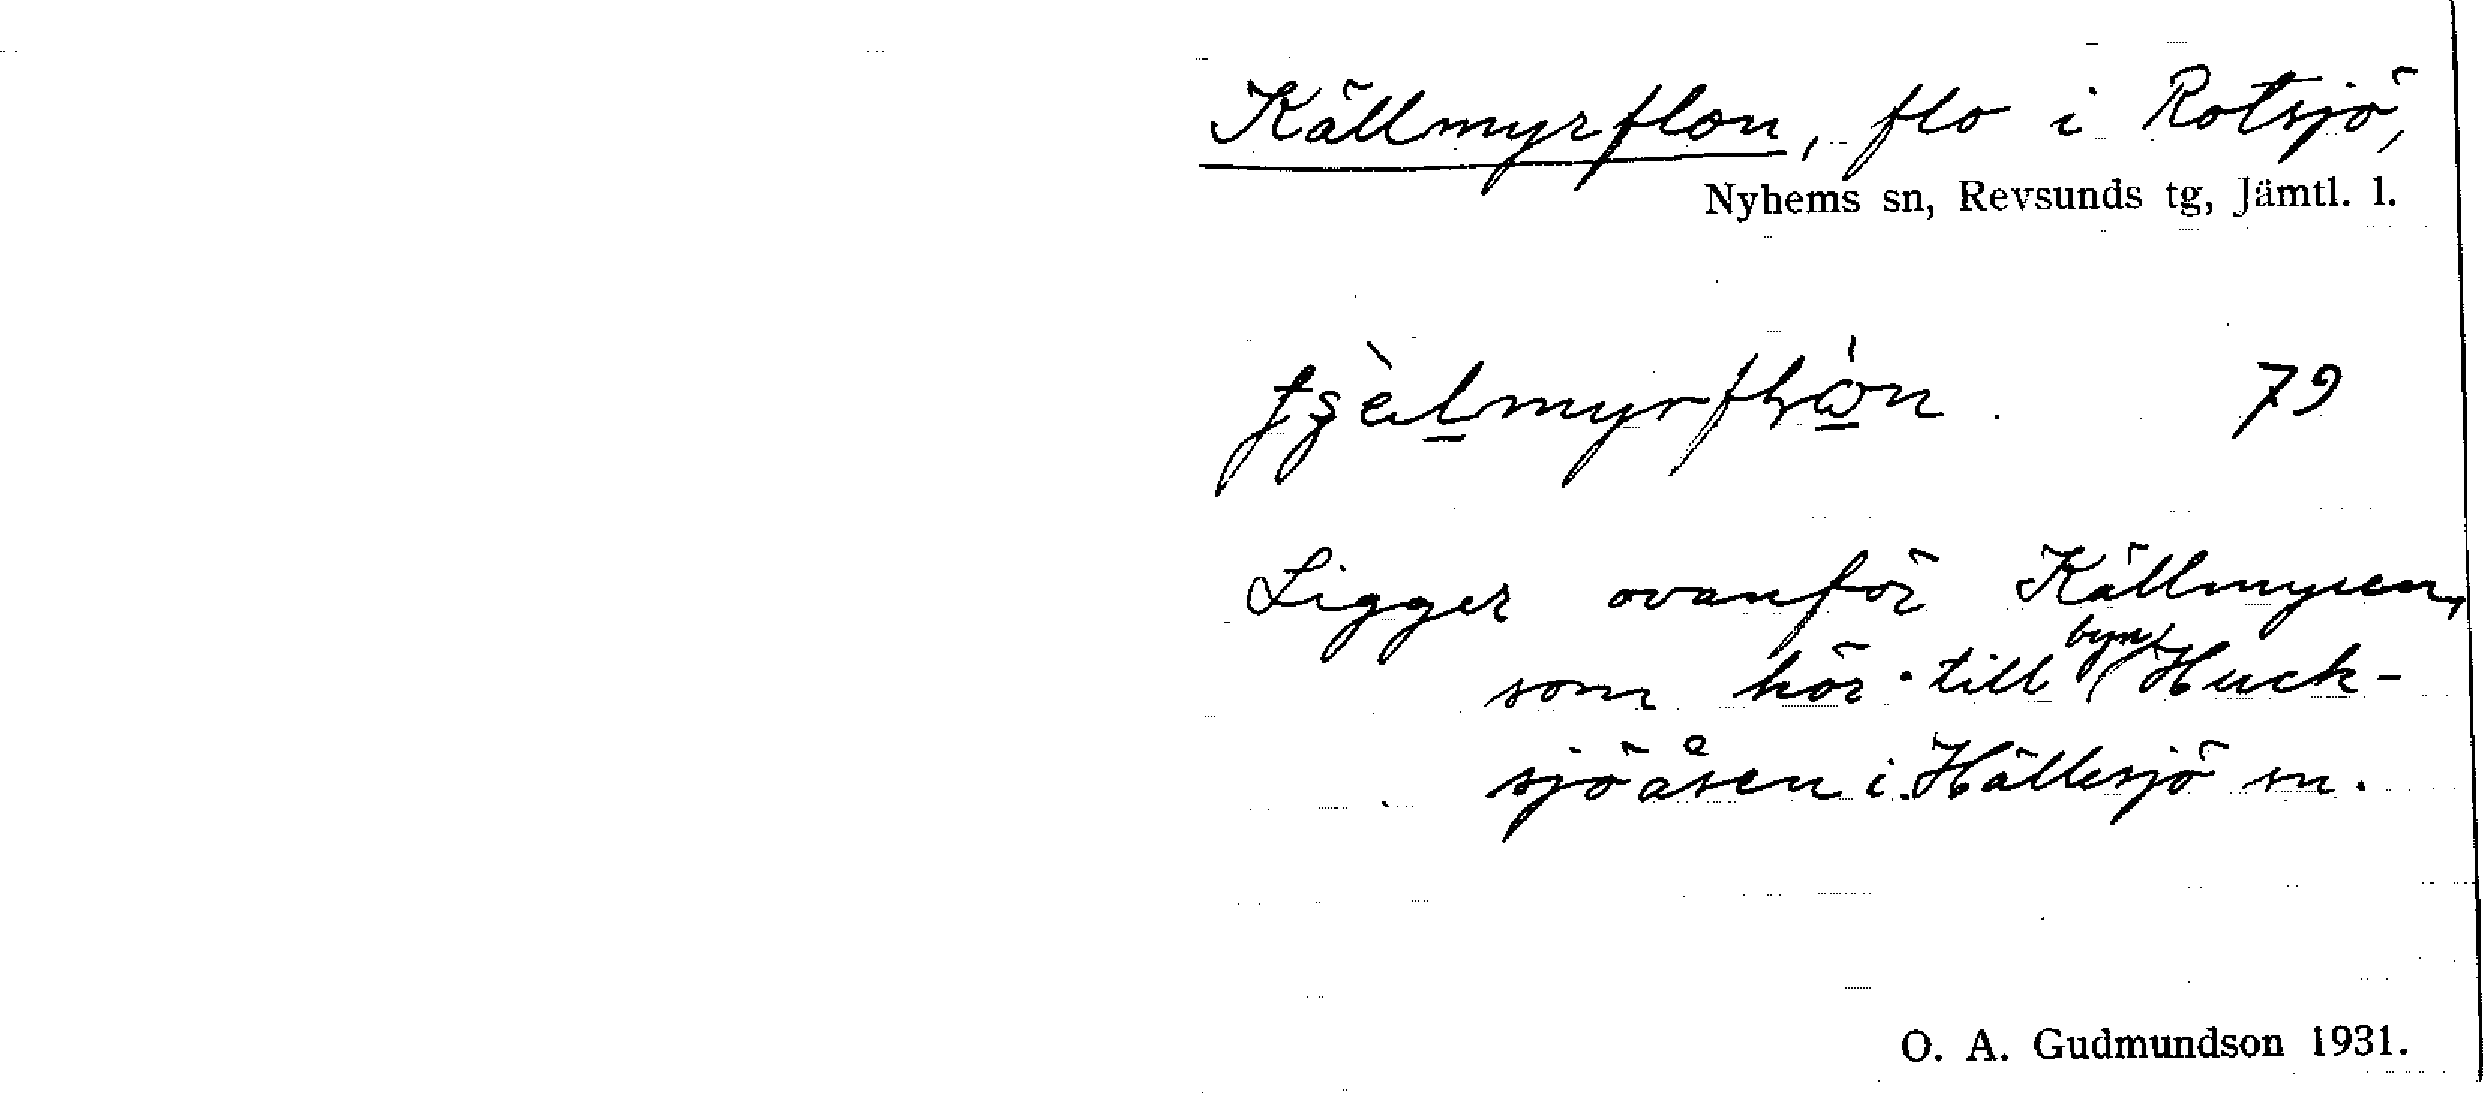 Källmyrflon, flo i Rotsjö,
Nyhems sn, Revsunds tg, Jämtl. l.
79
Ligger ovanför Källmyren,
som hör till byn Huck-
sjöåsen i Hällesjö sn.
O. A. Gudmundson 1931.